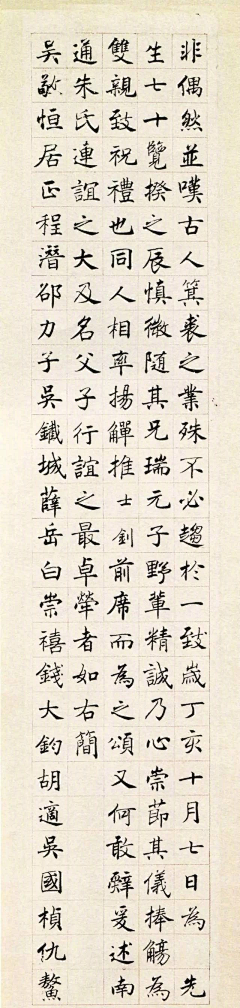 非偶然並嘆古人箕裘之業殊不必趨於一致歲丁亥十月七日為先
生七十覽揆之辰慎微隨其兄瑞元子野輩精誠乃心崇節其儀捧觴為
雙親致祝禮也同人相率揚觶推士釗前席而為之頌又何敢辭爰述南
通朱氏連誼之大及名父子行誼之最卓犖者如右簡
吳敬恒居正程潛邵力子吳鐵城薛岳白崇禧錢大鈞胡適吳國楨仇鰲